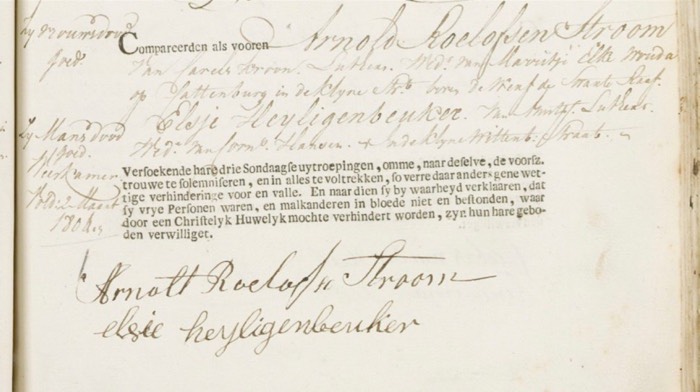 Compareerden als vooren Arnold Roelofsen Stroom
van Luthers. Wed. van
op Kattenburg in de Klyne
Elsje Heyligenbeuker. van Luthers
Wed. van Hansen + in de Klyne Wittenb. Straat
Versoekende hare drie Sondaagse uytroepingen, omme, naar deselve, de voorsz.
trouwe te solemniseren, en in alles te voltrekken, so verre daar anders gene wet-
tige verhinderinge voor en valle. En naar dien sy by waarheyd verklaaren, dat
sy vrye Personen waren, en malkanderen in bloede niet en bestonden, waar
door een Christelyk Huwelyk mochte verhindert worden, zyn hun hare gebo-
den verwilliget.
Zy
goed.
Zy Mans dood
goed
Weeskamer
Arnolt Roelofsn Stroom
elsie heyligenbeuker